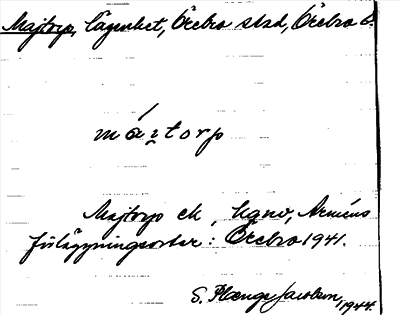 Majtorp, lägenhet, Örebro stad, Örebro l.
máɪ̯torp
Majtorp ek, Arméns
förläggningsorter: Örebro 1941.
S. Plænge Jacobson, 1944.